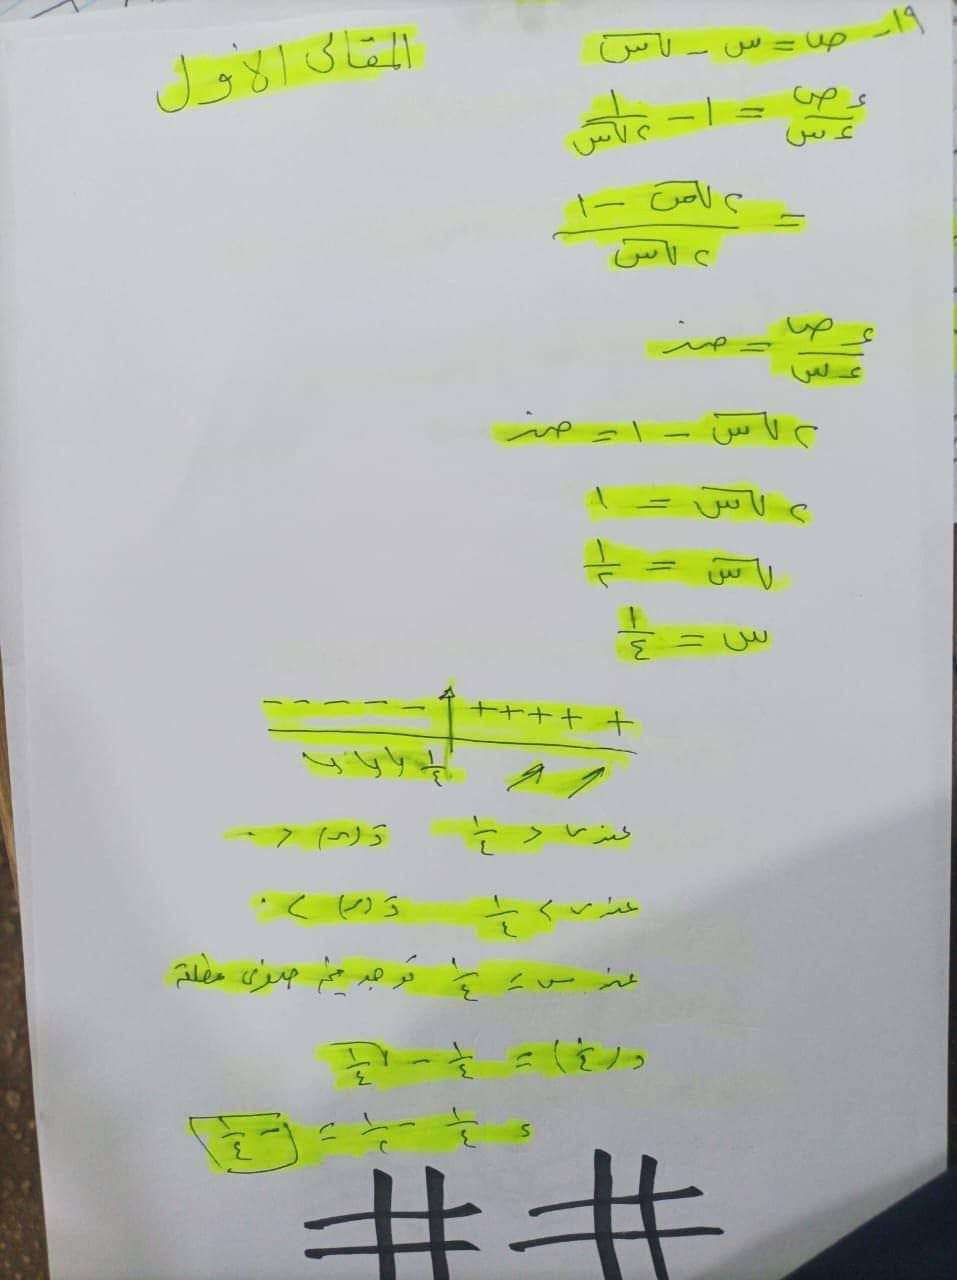 المقالى الاول
١٩- ص = س - √س
ءص/ءس = ١ - ١/٢√س
= ٢√س - ١ / ٢√س
ءص/ءس = صفر
٢√س - ١ = صفر
٢√س = ١
√س = ١/٢
س = ١/٤
- - - - - + + + + +
١/٤
عند س < ١/٤ دَ(س) < ٠
عند س > ١/٤ دَ(س) > ٠
عند س = ١/٤ توجد قيم صغرى مطلقة
د(١/٤) = ١/٤ - √١/٤
= ١/٤ - ١/٢ = -١/٤